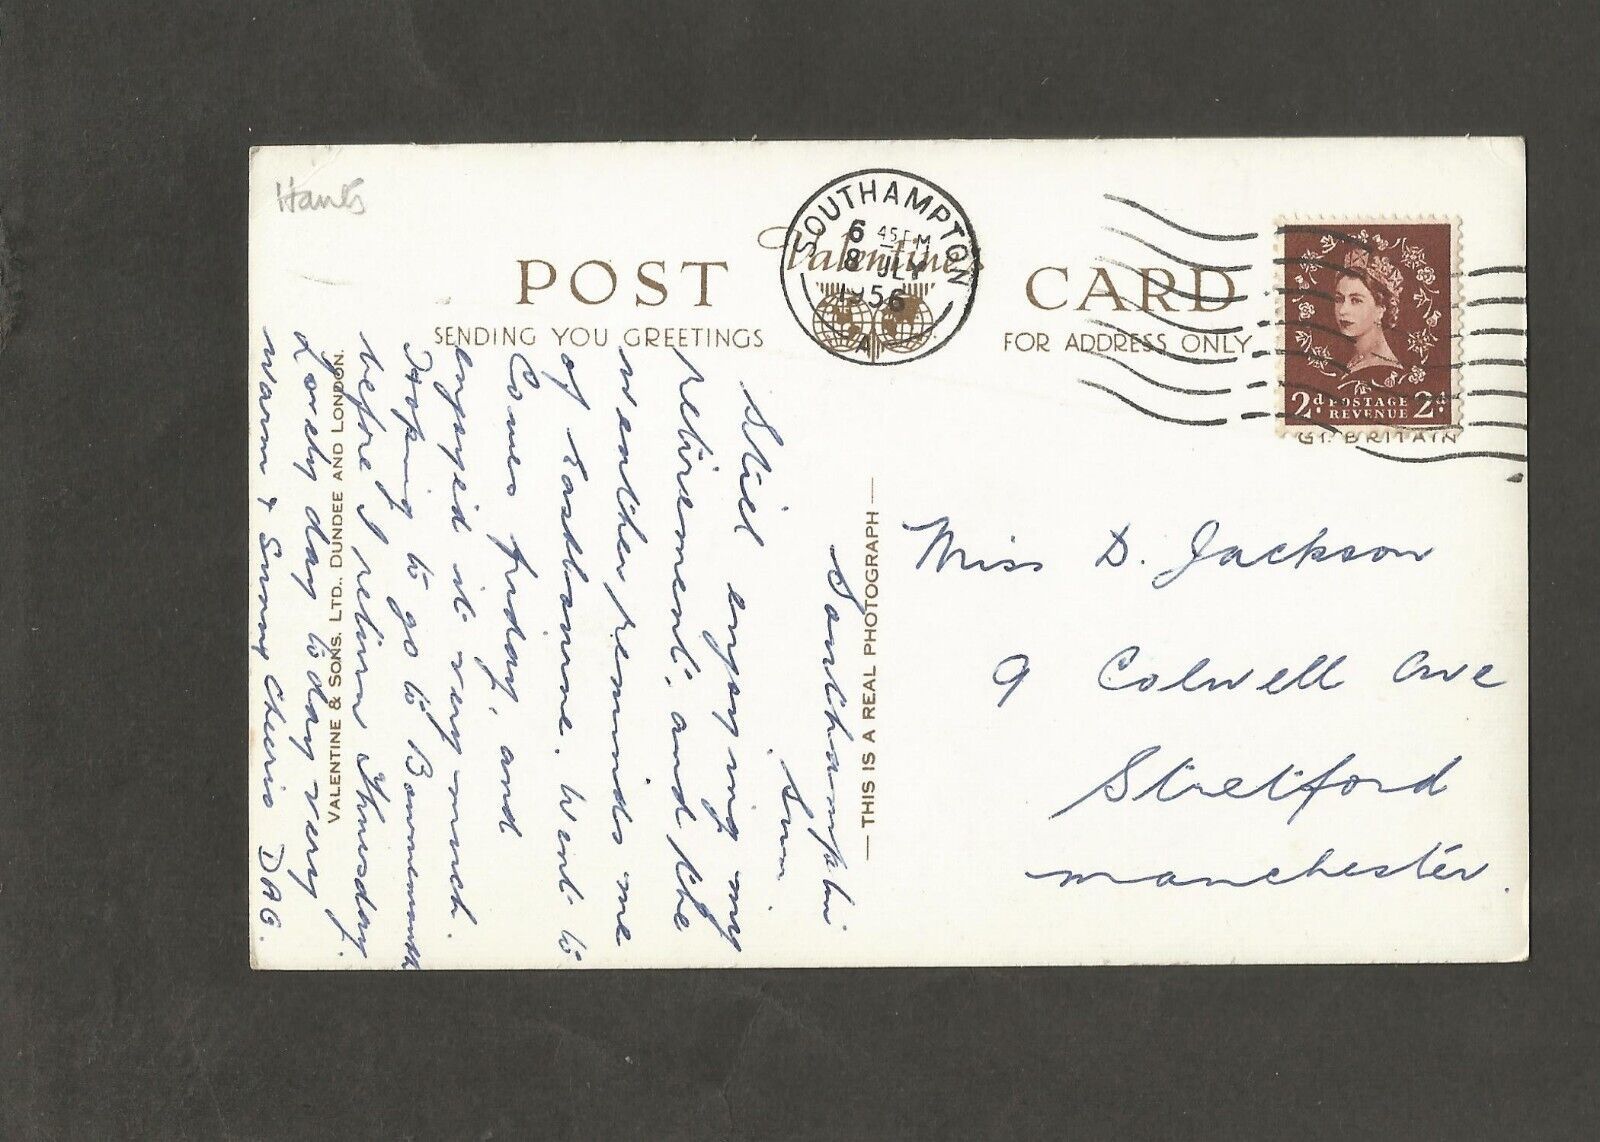 Hants
POST CARD
Valentine's
SENDING YOU GREETINGS
FOR ADDRESS ONLY
SOUTHAMPTON
6 45 PM
8 JLY
1956
A
2d POSTAGE 2d
REVENUE
GT. BRITAIN
Miss D. Jackson
9 Colwell Ave
Stretford
Manchester.
THIS IS A REAL PHOTOGRAPH
VALENTINE & SONS, LTD., DUNDEE AND LONDON.
Southampton
Sun.
Still enjoying my
retirement, and the
weather reminds me
of Eastbourne. Went to
Cowes friday, and
enjoyed it very much.
Hoping to go to Bournemouth
before I return Thursday.
Lovely day to day very
warm & Sunny Cheerio DAG.